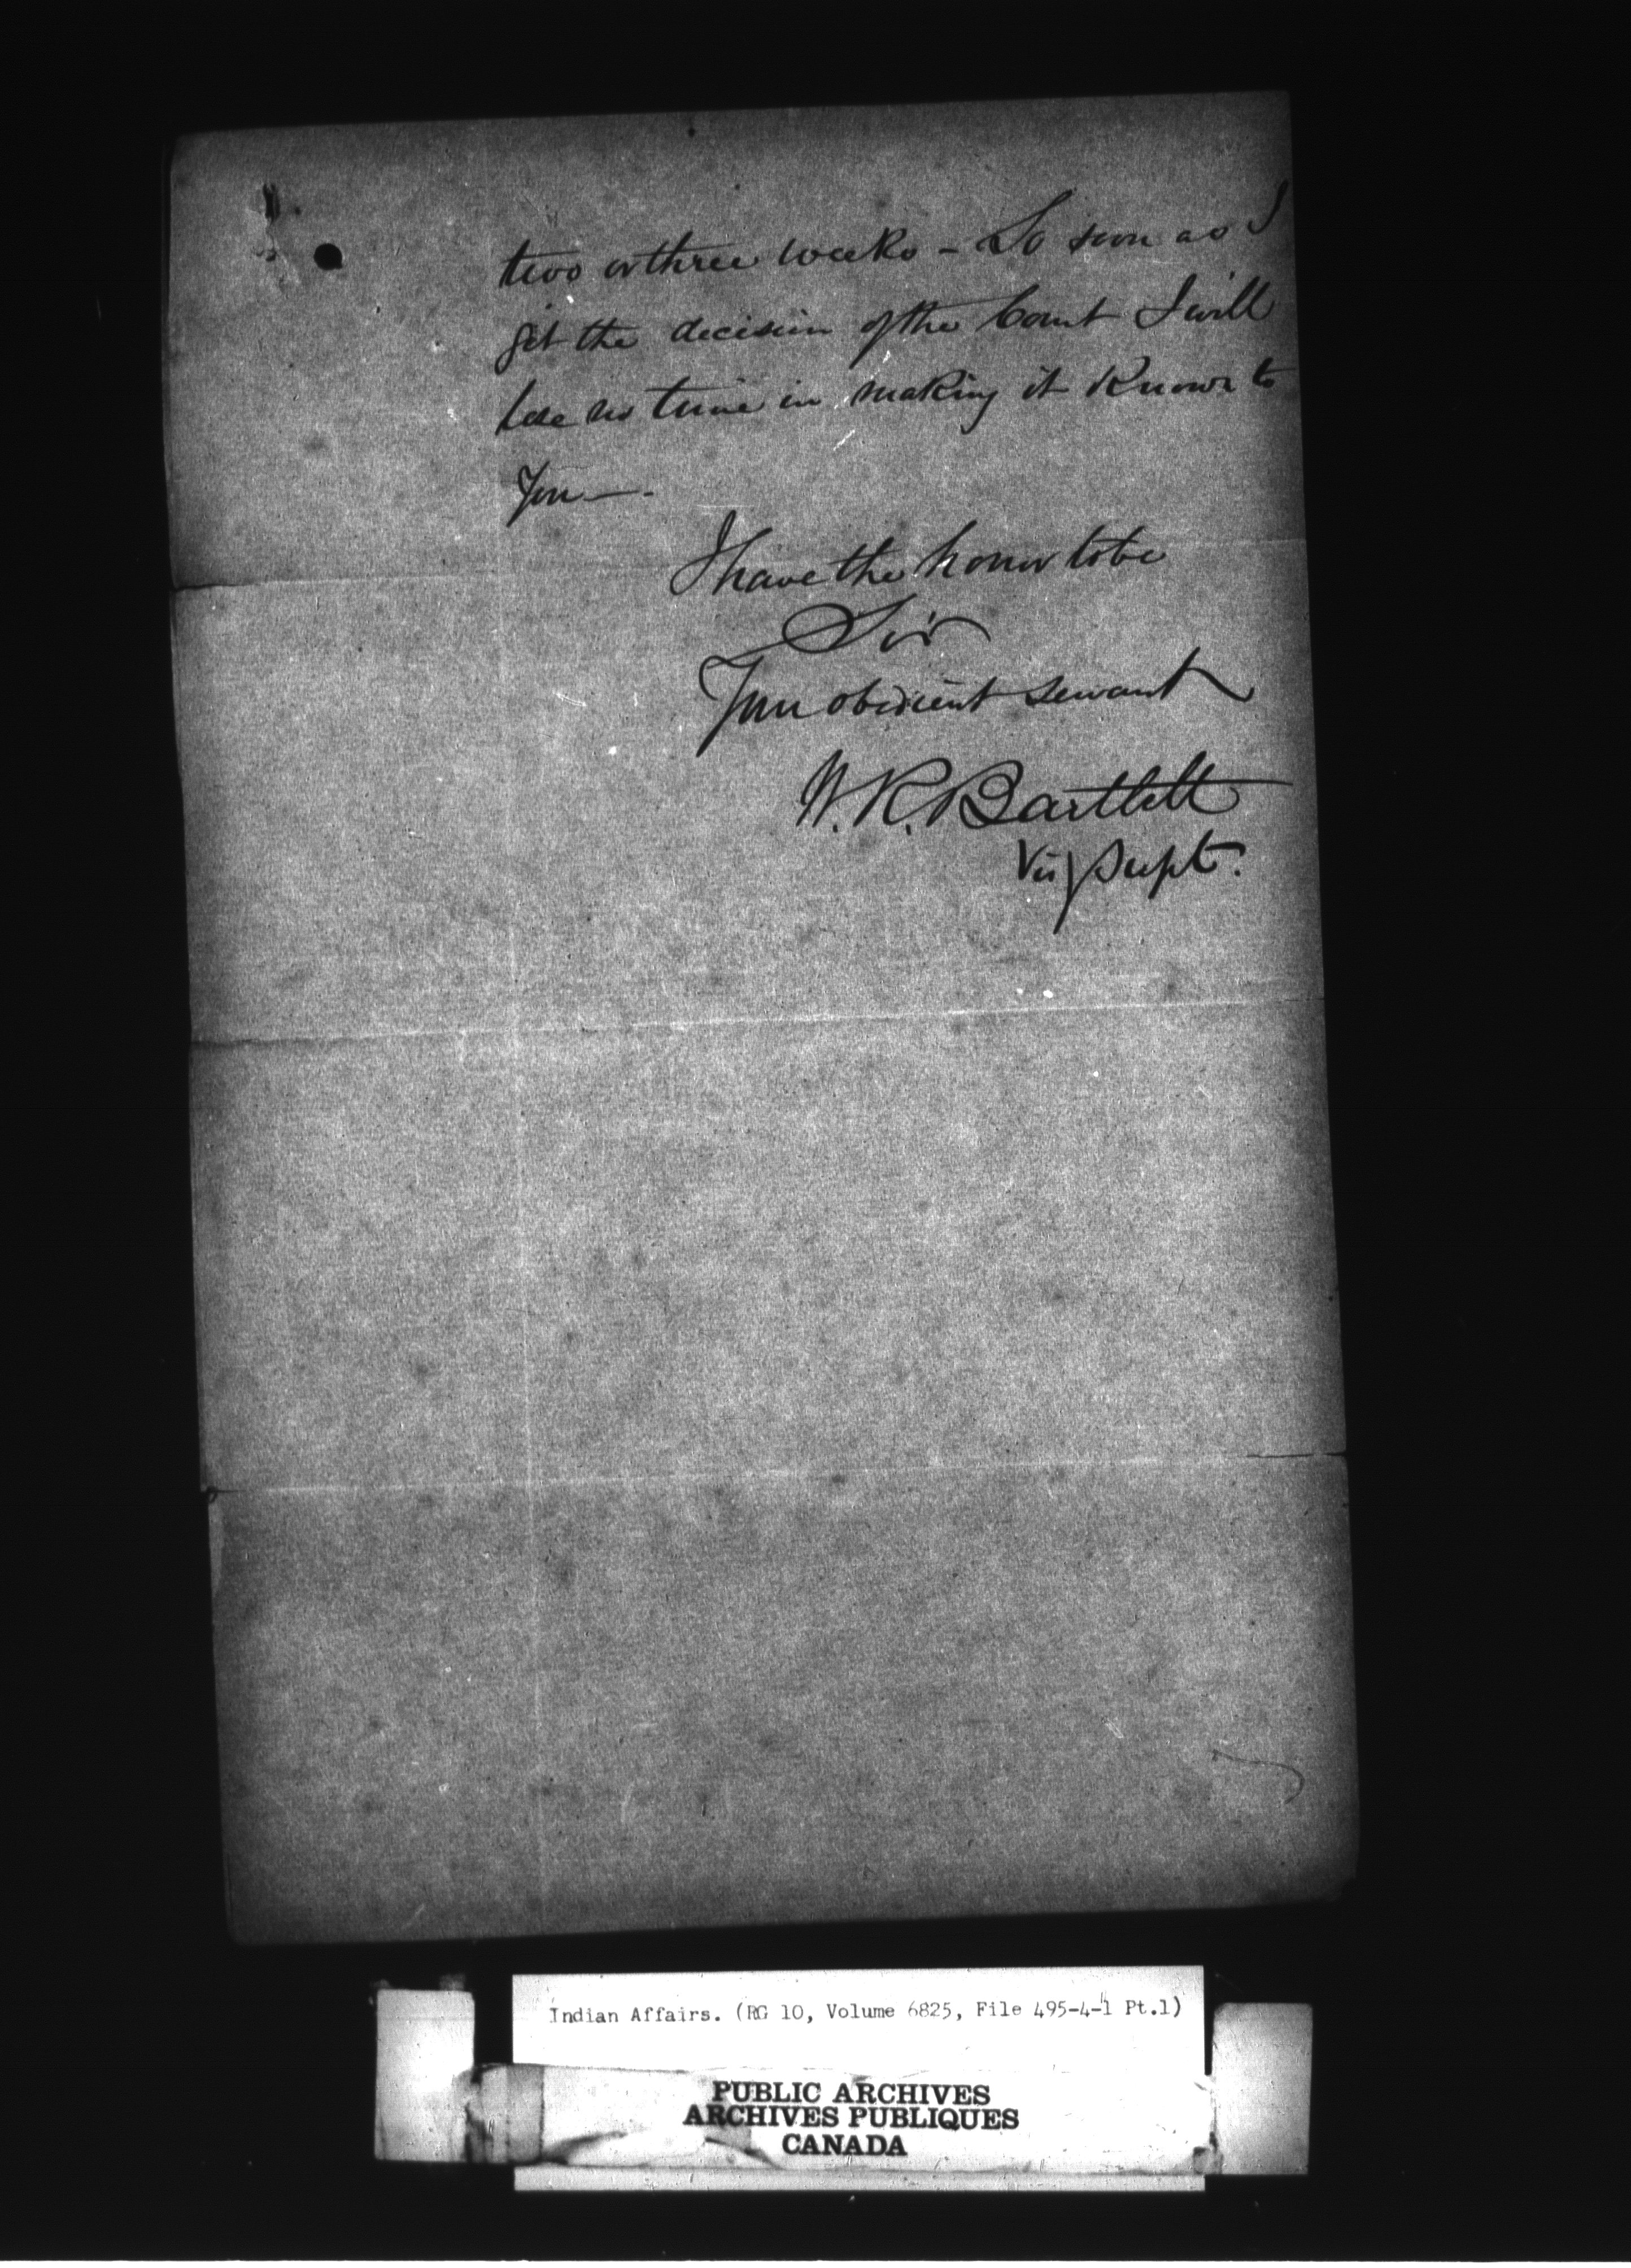 two or three weeks - So soon as I
get the decision of the Court I will
lose no time in making it Known to
You -.
I have the honor to be
Sir
Your obedient servant
W. R. Bartlett
Vis Supt.
Indian Affairs. (RG 10, Volume 6825, File 495-4-1 Pt.1)
PUBLIC ARCHIVES
ARCHIVES PUBLIQUES
CANADA